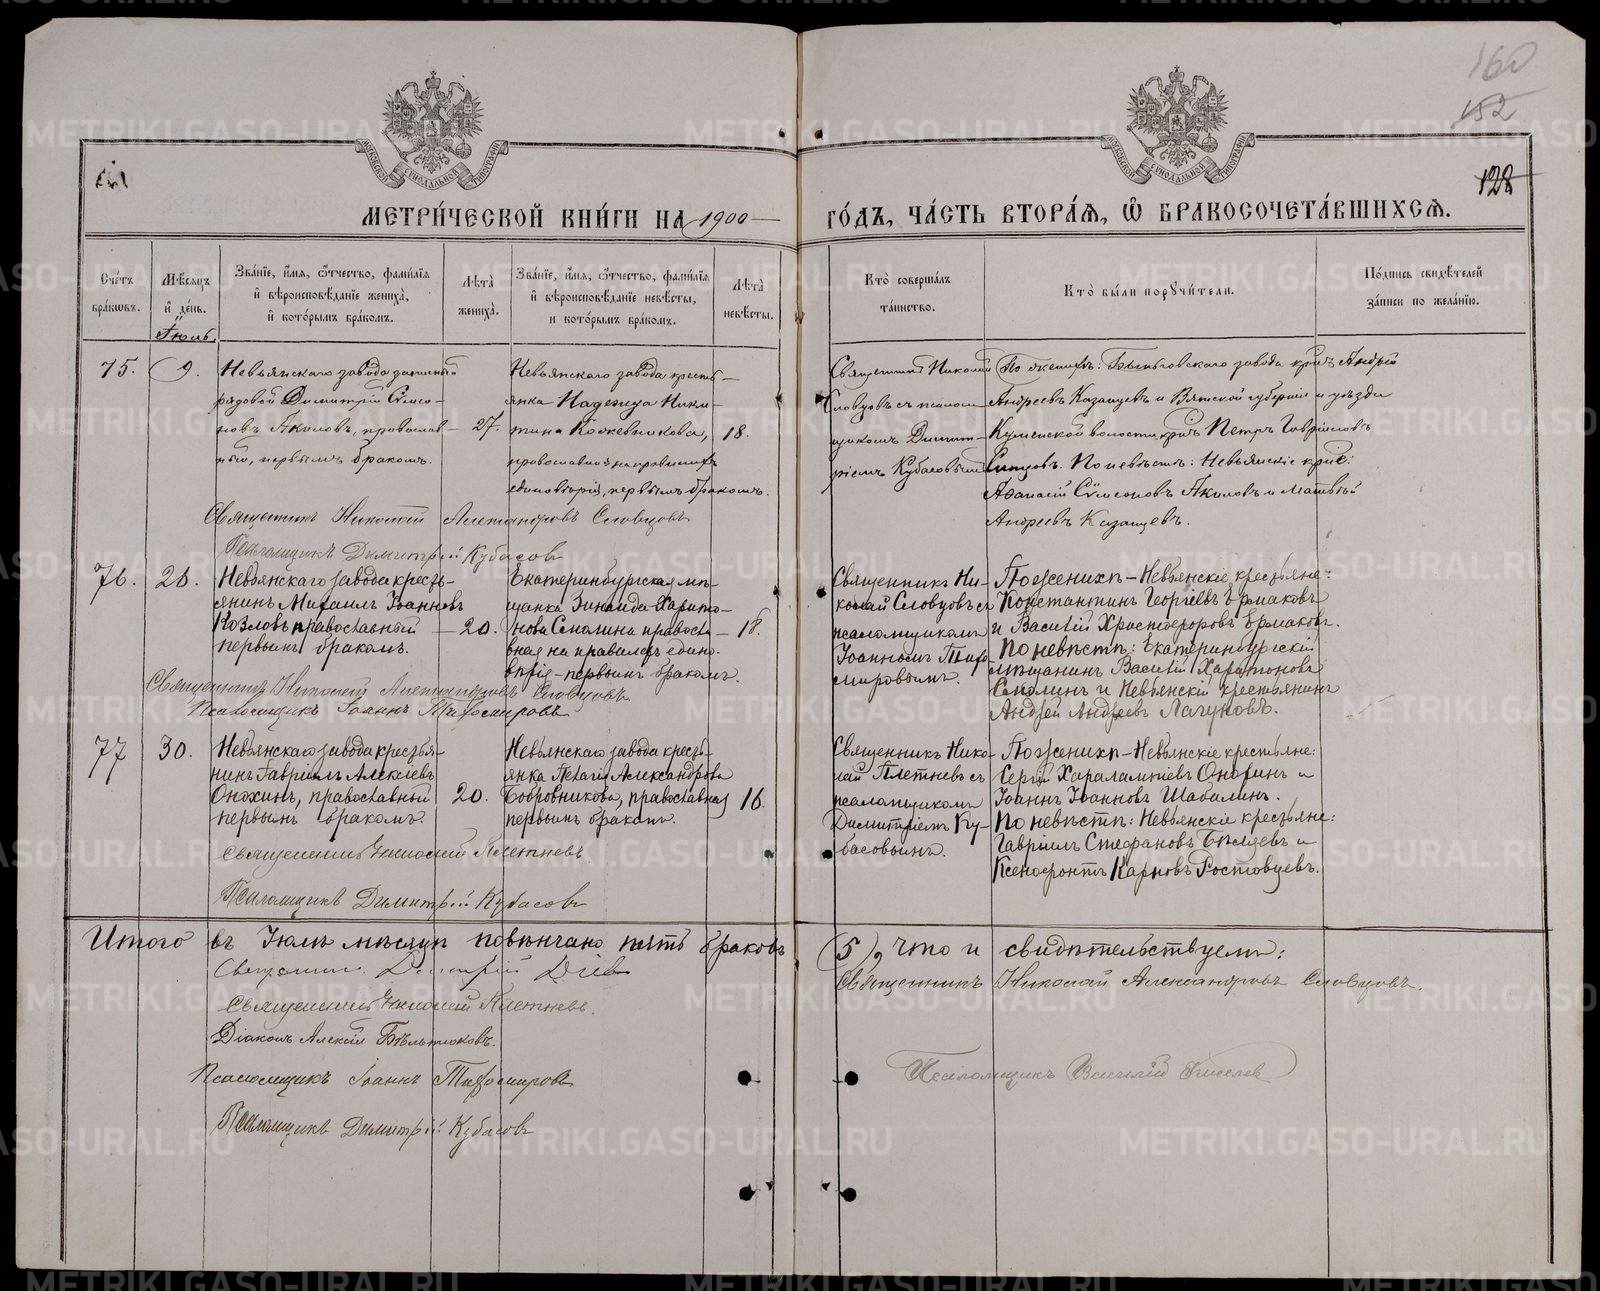 160
152
128
МОСКОВСКОЙ СѴНОДАЛЬНОЙ ТИПОГРАФІИ
МОСКОВСКОЙ СѴНОДАЛЬНОЙ ТИПОГРАФІИ
МЕТРИ́ЧЕСКОЙ КНИ́ГИ НА 1900 ГО́ДЪ, ЧА́СТЬ ВТОРА́Я, Ѿ БРАКОСОЧЕТА́ВШИХСЯ.
Сче́тъ бра́ковъ.
Мѣ́сяцъ и҆ де́нь.
Іюль
Зва́нїе, и҆́мя, ѻ҆́тчество, фами́лїя и҆ вѣроисповѣ́данїе жениха̀, и҆ кото́рымъ бра́комъ.
Лѣ́та жениха̀.
Зва́нїе, и҆́мя, ѻ҆́тчество, фами́лїя и҆ вѣроисповѣ́данїе невѣ́сты, и кото́рымъ бра́комъ.
Лѣ́та невѣ́сты.
Кто̀ соверша́лъ та́инство.
Кто̀ бы́ли порꙋчи́тели.
По́дпись свидѣ́телей за́писи по жела́нїю.
75.
9.
Невьянскаго завода запасный
рядовой Димитрій Сѵмео-
новъ Акиловъ, православ-
ный, первымъ бракомъ.
27.
Невьянскаго завода кресть-
янка Надежда Ники-
тина Кожевникова,
православная на правилахъ
единовѣрія, первымъ бракомъ.
18.
Священникъ Николай
Словцовъ съ псалом-
щикомъ Димит-
ріемъ Кубасовымъ
По женихѣ: Быньговскаго завода крест. Андрей
Андреевъ Казанцевъ и Вятской губерніи и уѣзда
Куменской волости, крест. Петръ Гавріиловъ
Сунцовъ. По невѣстѣ: Невьянскіе крест:
Аѳанасій Сѵмеоновъ Акиловъ и Матвѣй
Андреевъ Казанцевъ.
Священникъ Николай Александровъ Словцовъ
Псаломщикъ Димитрій Кубасовъ
76.
26.
Невьянскаго завода кресть-
янинъ Михаилъ Іоанновъ
Козловъ православный
первымъ бракомъ.
20.
Екатеринбургская мѣ-
щанка Зинаида Харито-
нова Смолина правосла-
вная на правилахъ едино-
вѣрія - первымъ бракомъ.
18.
Священникъ Ни-
колай Словцовъ съ
псаломщикомъ
Іоанномъ Тихо-
мировымъ.
По женихѣ - Невьянскіе крестьяне:
Константинъ Георгіевъ Ермаковъ
и Василій Христофоровъ Ермаковъ.
По невѣстѣ: Екатеринбургскій
мѣщанинъ Василій Харитоновъ
Смолинъ и Невьянскій крестьянинъ
Андрей Андреевъ Лагуновъ.
Священникъ Николай Александровъ Словцовъ
Псаломщикъ Іоаннъ Тихомировъ
77
30.
Невьянскаго завода крестья-
нинъ Гавріилъ Алексіевъ
Онохинъ, православный
первымъ бракомъ.
20.
Невьянскаго завода кресть-
янка Пелагія Александрова
Бобровникова, православная
первымъ бракомъ.
16.
Священникъ Нико-
лай Плетневъ съ
псаломщикомъ
Димитріемъ Ку-
басовымъ.
По женихѣ - Невьянскіе крестьяне:
Сергій Харалампіевъ Онохинъ и
Іоаннъ Іоанновъ Шабалинъ.
По невѣстѣ: Невьянскіе крестьяне:
Гавріилъ Стефановъ Бѣляевъ и
Ксенофонтъ Карповъ Ростовцевъ.
Священникъ Николай Плетневъ.
Псаломщикъ Димитрій Кубасовъ
Итого въ Іюлѣ мѣсяцѣ повѣнчано пять браковъ (5), что и свидѣтельствуемъ:
Священникъ Димитрій Діевъ
Священникъ Николай Александровъ Словцовъ.
Священникъ Николай Плетневъ.
Діаконъ Алексій Бѣльтюковъ.
Псаломщикъ Іоаннъ Тихомировъ
Псаломщикъ Василій Киселев
Псаломщикъ Димитрій Кубасовъ
METRIKI.GASO-URAL.RU